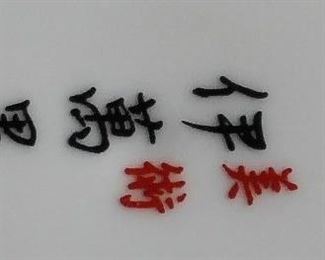 美術
伊萬